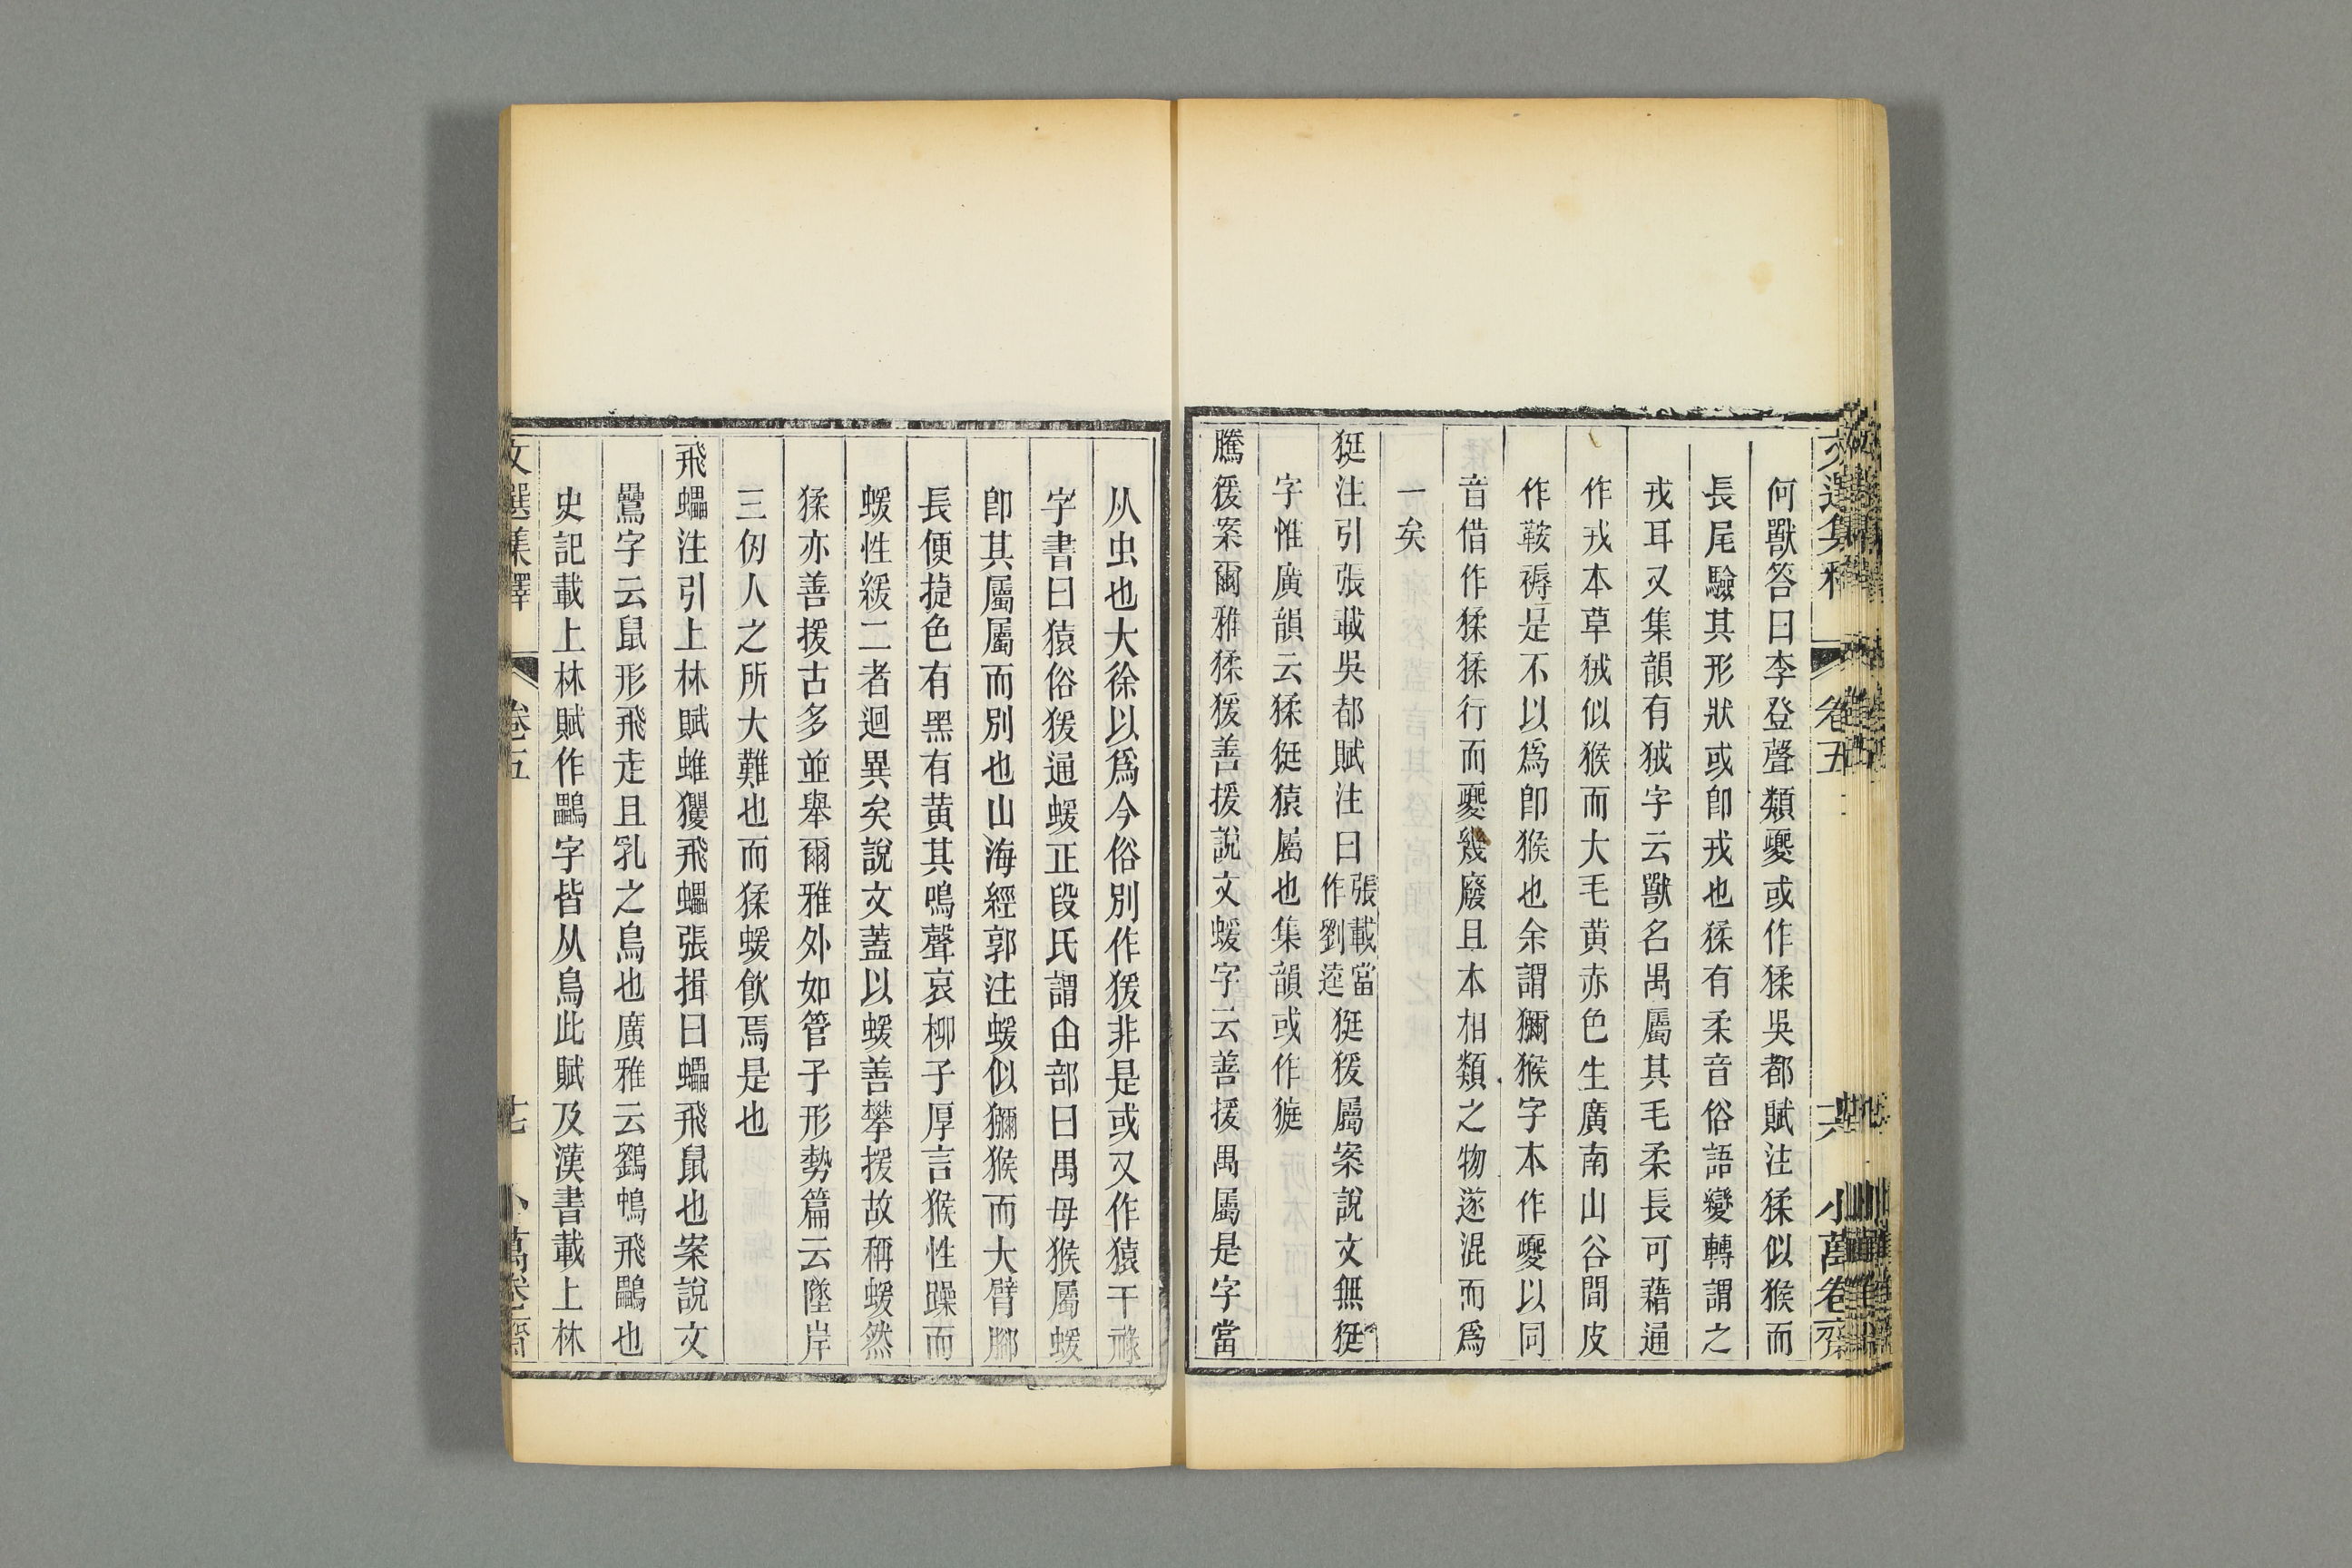 文選集釋 卷五 六 小萬卷齋
何獸答曰李登聲類夒或作猱吳都賦注猱似猴而
長尾驗其形狀或卽戎也猱有柔音俗語變轉謂之
戎耳又集韻有狨字云獸名禺屬其毛柔長可藉通
作戎本草狨似猴而大毛黃赤色生廣南山谷間皮
作鞍褥是不以爲卽猴也余謂獼猴字本作夒以同
音借作猱猱行而夒幾廢且本相類之物遂混而爲
一矣
狿注引張載吳都賦注曰張載當作劉逵狿猨屬案說文無狿
字惟廣韻云猱狿猿屬也集韻或作㹶
騰猨案爾雅猱猨善援說文蝯字云善援禺屬是字當
从虫也大徐以爲今俗別作猨非是或又作猿干祿
字書曰猿俗猨通蝯正段氏謂由部曰禺母猴屬蝯
卽其屬屬而別也山海經郭注蝯似獼猴而大臂腳
長便捷色有黑有黃其鳴聲哀柳子厚言猴性躁而
蝯性緩二者迥異矣說文蓋以蝯善攀援故稱蝯然
猱亦善援古多並舉爾雅外如管子形勢篇云墜岸
三仞人之所大難也而猱蝯飲焉是也
飛蠝注引上林賦蜼玃飛蠝張揖曰蠝飛鼠也案說文
鸓字云鼠形飛走且乳之鳥也廣雅云鷚𪂆飛鸓也
史記載上林賦作鸓字皆从鳥此賦及漢書載上林
文選集釋 卷五 七 小萬卷齋